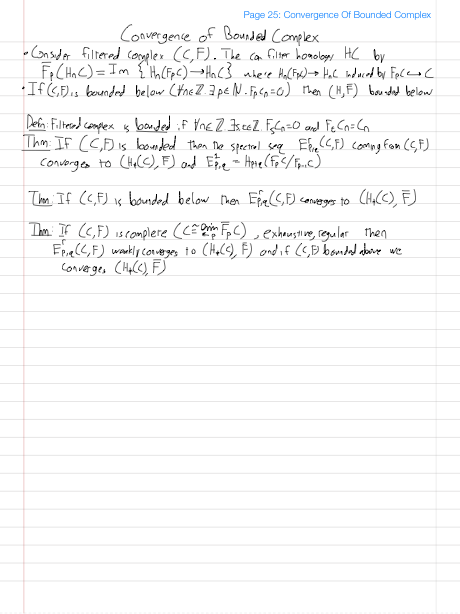 Page 25: Convergence Of Bounded Complex
Convergence of Bounded Complex
• Consider filtered complex (C,F). The can filter homology HC by
F̅ₚ(HₙC) = Im { Hₙ(FₚC) → HₙC } where Hₙ(FₚC) → HₙC induced by FₚC ↪ C
• If (C,F) is bounded below (∀n∈ℤ. ∃p∈ℕ. FₚCₙ=0) then (H,F̅) bounded below
Defn: Filtered complex is bounded if ∀n∈ℤ ∃s,t∈ℤ. FₛCₙ=0 and FₜCₙ=Cₙ
Thm: If (C,F) is bounded then the spectral seq Eʳp,q (C,F) coming from (C,F)
converges to (H*(C), F̅) and E¹p,q = Hp+q (FₚC/Fₚ₋₁C)
Thm: If (C,F) is bounded below then Eʳp,q(C,F) converges to (H*(C), F̅)
Thm: If (C,F) is complete (C ≅ lim FₚC), exhaustive, regular then
Eʳp,q(C,F) weakly converges to (H*(C), F̅) and if (C,F) bounded above we
converges (H*(C), F̅)